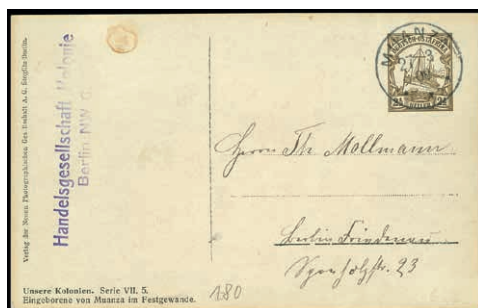 Verlag der Neuen Photographischen Gesellschaft A. G. Steglitz-Berlin.
Handelsgesellschaft Kolonie
Berlin NW. 6.
MUANZA
Herrn Th. Mollmann
Berlin Friedenau
Sponholzstr. 23
Unsere Kolonien. Serie VII, 5.
Eingeborene von Muanza im Festgewande.
180